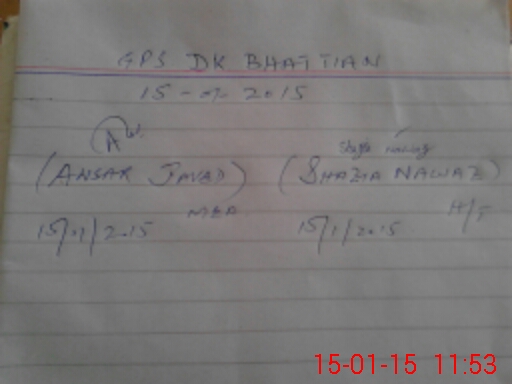 GPS DK BHATTIAN
15-01-2015
(ANSAR JAVED) (SHAZIA NAWAZ)
MEA H/T
15/01/2015 15/1/2015
15-01-15 11:53